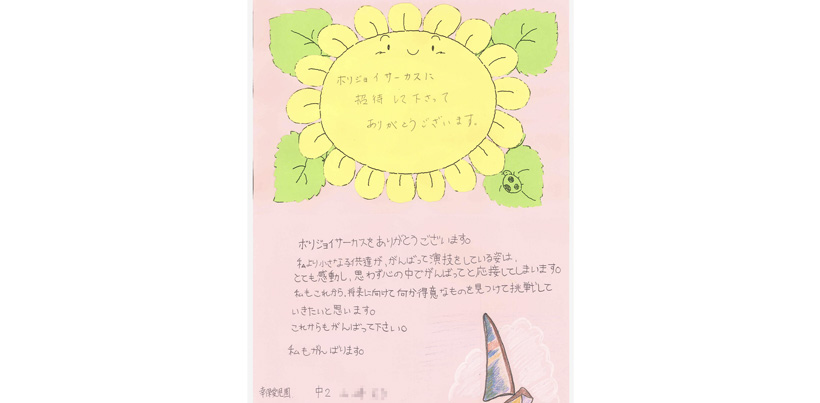 ボリジョイサーカスに
招待して下さって
ありがとうございます。
ボリジョイサーカスをありがとうございます。
私より小さな子供達が、がんばって演技をしている姿は、
とても感動し、思わず心の中でがんばってと応援してしまいます。
私もこれから、将来に向けて何か得意なものを見つけて挑戦して
いきたいと思います。
これからもがんばって下さい。
私もがんばります。
中2